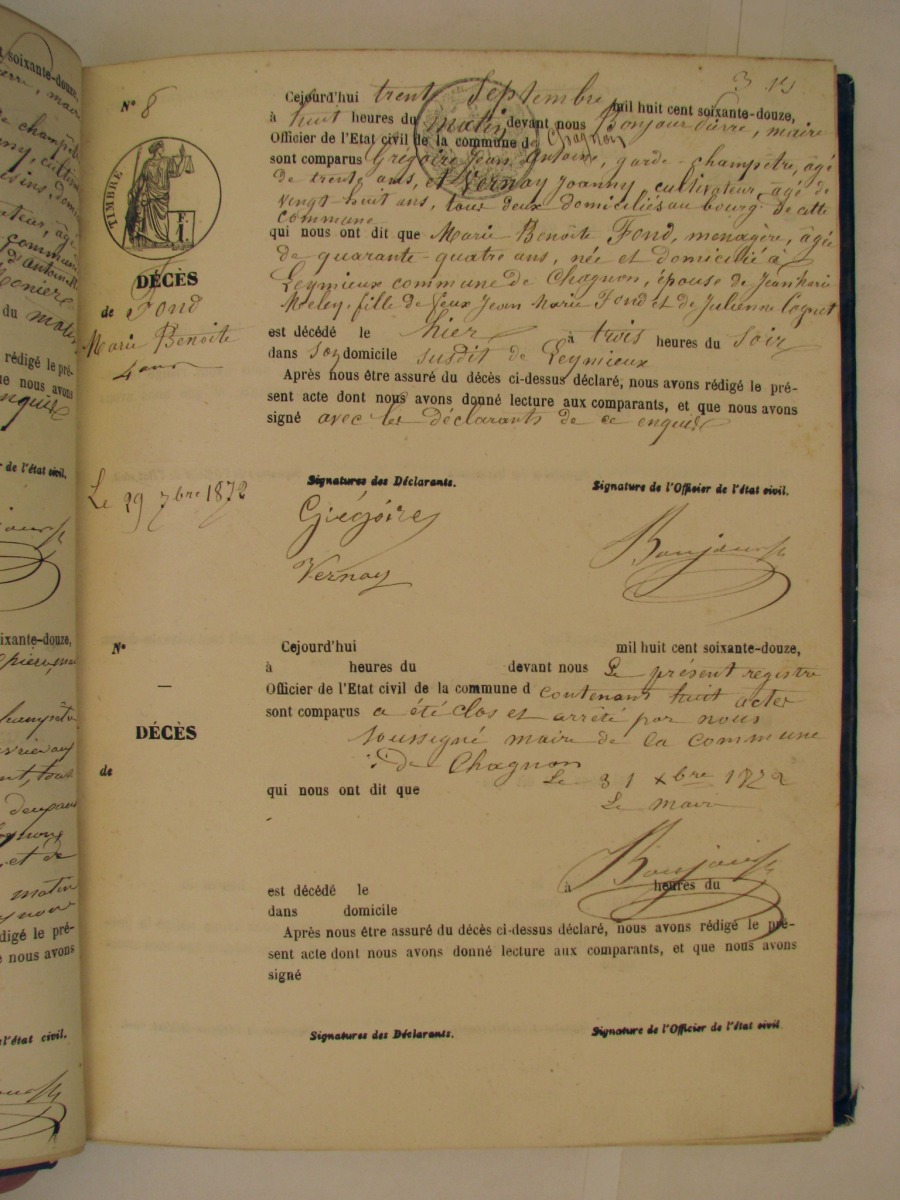 3 12
N° 8
Cejourd'hui trente Septembre mil huit cent soixante-douze,
à huit heures du matin devant nous Bonjour Pierre, maire
Officier de l'Etat civil de la commune d e Chagnon
sont comparus Grégoire Jean Antoine, garde-champêtre, âgé
de trente ans, et Vernay Joanny cultivateur, agé de
vingt huit ans, tous deux domiciliés au bourg de cette
commune
qui nous ont dit que Marie Benoite Fond, menagère, âgée
de quarante-quatre ans, née et domicilié à
Leymieux commune de Chagnon, épouse de Jean Marie
Meley, fille de feux Jean Marie Fond et de Julienne Cognet
est décédé le hier à trois heures du Soir
dans Son domicile susdit de Leymieux
Après nous être assuré du décès ci-dessus déclaré, nous avons rédigé le pré-
sent acte dont nous avons donné lecture aux comparants, et que nous avons
signé avec les déclarants de ce enquis
TIMBRE
DÉCÈS
de Fond
Marie Benoite
Le 29 7bre 1872
Signatures des Déclarants.
Signature de l'Officier de l'état civil.
Grégoire
Bonjour
Vernay
N°
DÉCÈS
de
Cejourd'hui mil huit cent soixante-douze,
à heures du devant nous Le présent registre
Officier de l'Etat civil de la commune d contenant huit actes
sont comparus a été clos et arrêté par nous
soussigné maire de la commune
de Chagnon
Le 31 Xbre 1872
qui nous ont dit que
Le maire
Bonjour
est décédé le à heures du
dans domicile
Après nous être assuré du décès ci-dessus déclaré, nous avons rédigé le pré-
sent acte dont nous avons donné lecture aux comparants, et que nous avons
signé
Signatures des Déclarants.
Signature de l'Officier de l'état civil